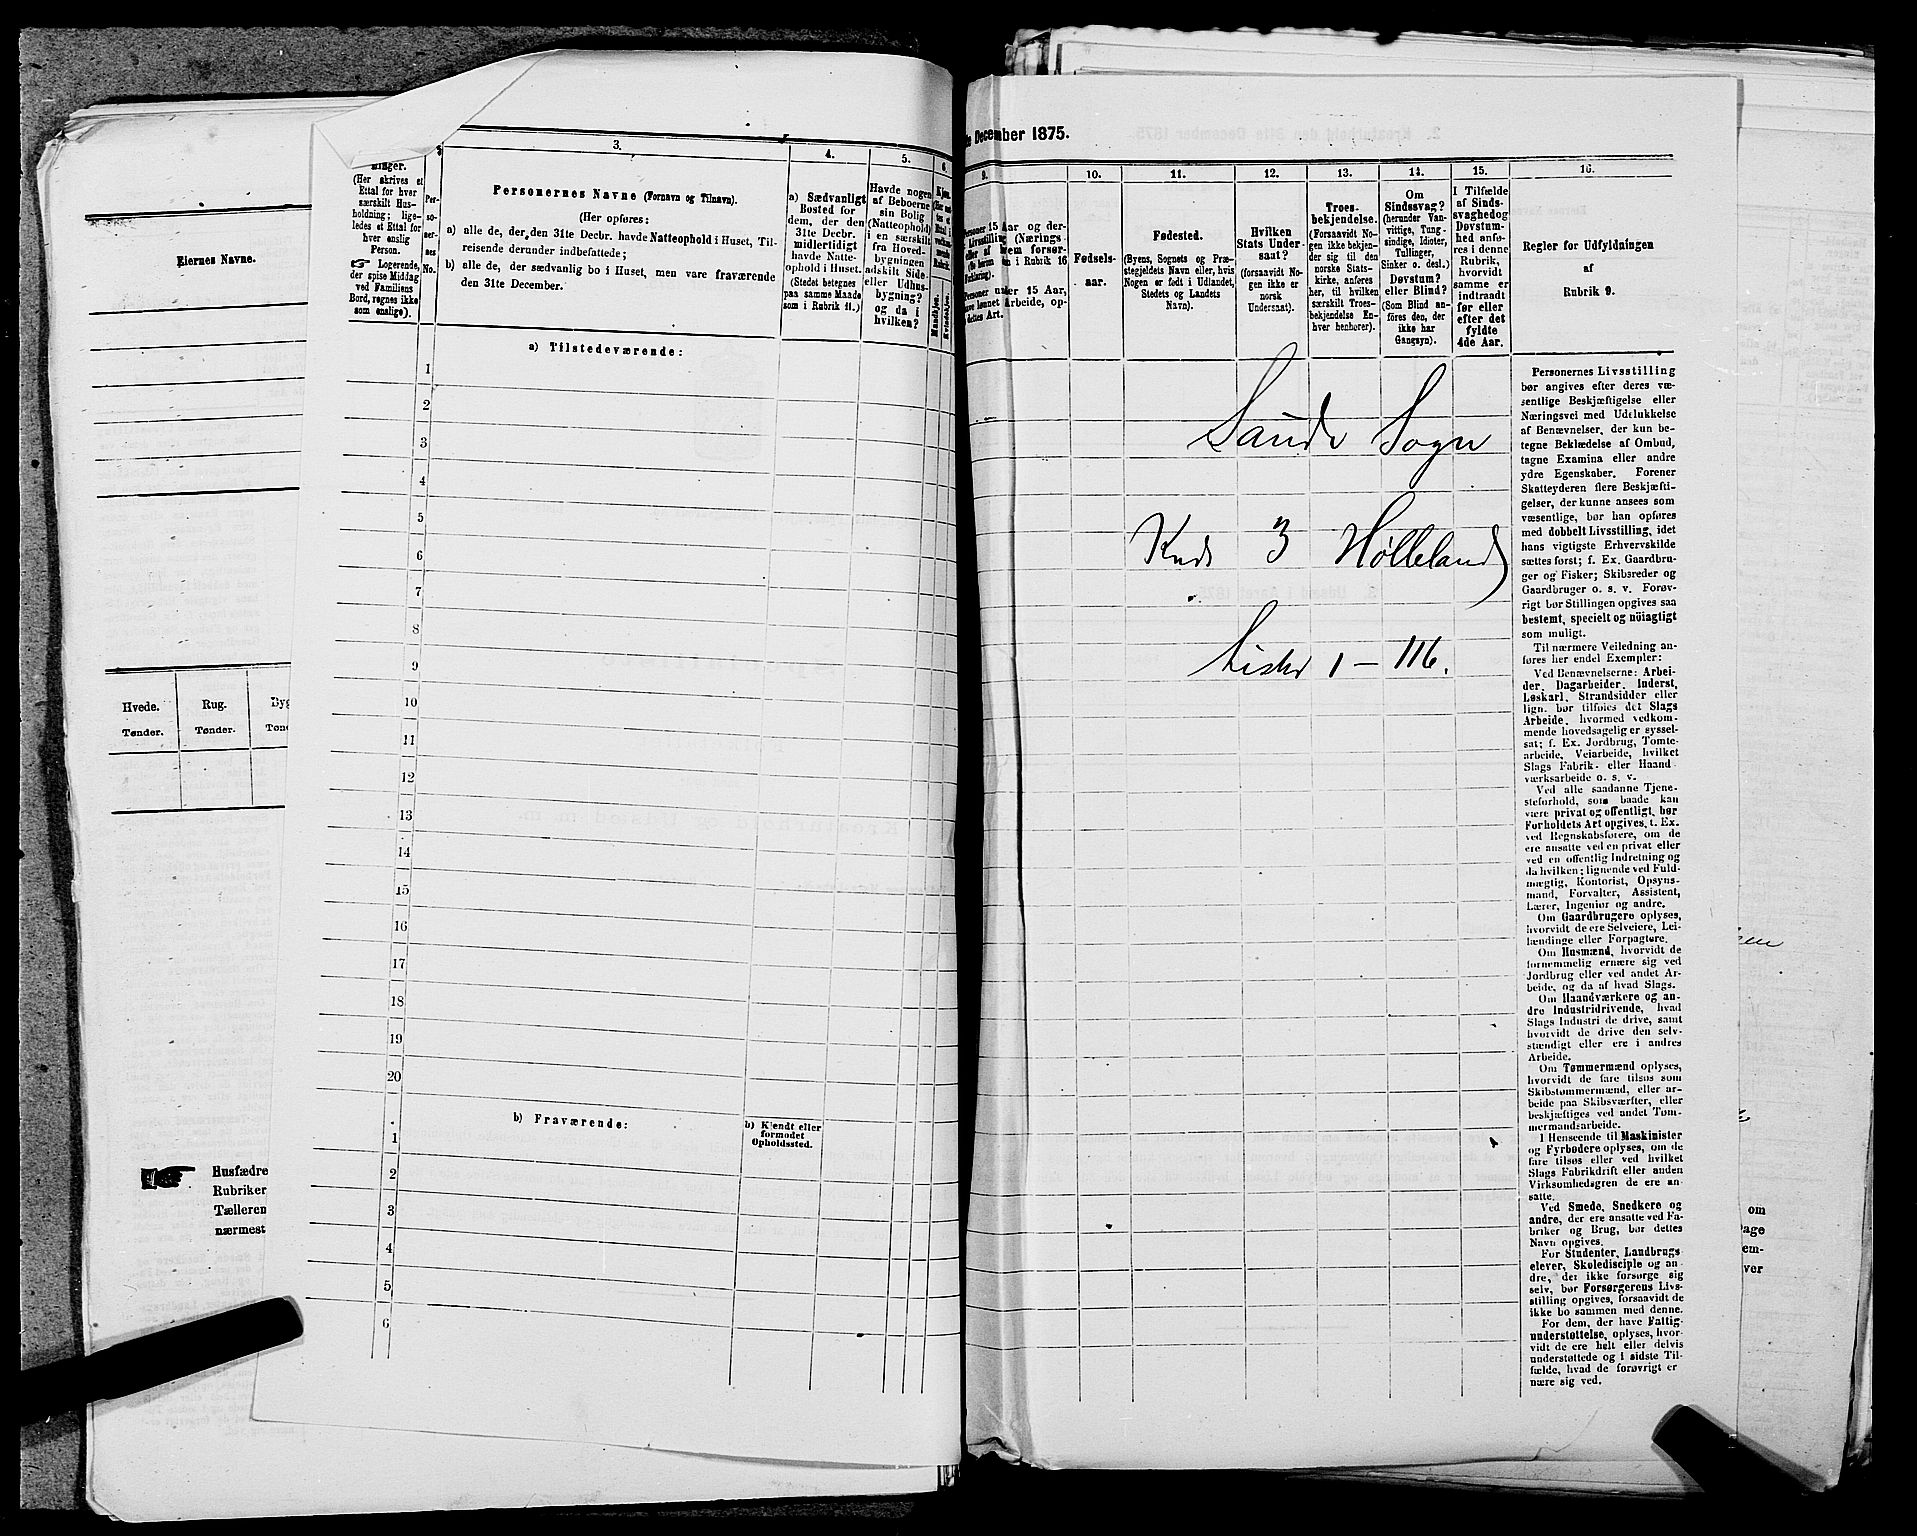 Eiernes Navne.
Hvede.
Tønder.
Rug.
Tønder.
Husfædre
Rubriker
Tælleren
nærmest
(Her skrives et
Ettal for hver
særskilt Hus-
holdning; lige-
ledes et Ettal for
hver enslig
Person.
Logerende,
der spise Middag
ved Familiens
Bord, regnes ikke
som enslige).
Per-
so-
ner-
nes
No.
3.
Personernes Navne (Fornavn og Tilnavn).
(Her opføres:
a) alle de, der den 31te Decbr. havde Natteophold i Huset, Til-
reisende derunder indbefattede;
b) alle de, der sædvanlig bo i Huset, men vare fraværende
den 31te December.
4.
a) Sædvanligt
Bosted for
dem, der den
31te Decbr.
midlertidigt
havde Natte-
ophold i Huset.
(Stedet betegnes
paa samme Maade
som i Rubrik 11.)
5.
Havde nogen
af Beboerne
sin Bolig
(Natteophold)
i en særskilt
fra Hoved-
bygningen
adskilt Side-
eller Udhus-
bygning?
og da i
hvilken?
6.
Mandkjøn.
Kvindekjøn.
a) Tilstedeværende:
1
2
3
4
5
6
7
8
9
10
11
12
13
14
15
16
17
18
19
20
b) Fraværende:
b) Kjendt eller
formodet
Opholdssted.
1
2
3
4
5
6
December 1875.
9.
10.
Fødsels-
aar.
11.
Fødested.
(Byens, Sognets og Præ-
stegjeldets Navn eller, hvis
Nogen er født i Udlandet,
Stedets og Landets
Navn).
12.
Hvilken
Stats Under-
saat?
(forsaavidt No-
gen ikke er
norsk
Undersaat).
13.
Troes-
bekjendelse.
(Forsaavidt No-
gen ikke bekjen-
der sig til den
norske Stats-
kirke, anføres
her, til hvilken
særskilt Troes-
bekjendelse En-
hver henhører).
14.
Om
Sindssvag?
(herunder Van-
vittige, Tung-
sindige, Idioter,
Tullinger,
Sinker o. desl.)
Døvstum?
eller Blind?
(Som Blind an-
føres den, der
ikke har
Gangsyn).
15.
I Tilfælde
af Sinds-
svaghedog
Døvstum-
hed anfø-
res i denne
Rubrik,
hvorvidt
samme er
indtraadt
før eller
efter det
fyldte
4de Aar.
16.
Regler for Udfyldningen
af
Rubrik 9.
Saude Sogn
Kreds 3 Hølleland
Lister 1 - 116.
Personernes Livsstilling
bør angives efter deres væ-
sentlige Beskjæftigelse eller
Næringsvei med Udelukkelse
af Benævnelser, der kun be-
tegne Beklædelse af Ombud,
tagne Examina eller andre
ydre Egenskaber. Forener
Skatteyderen flere Beskjæfti-
gelser, der kunne ansees som
væsentlige, bør han opføres
med dobbelt Livsstilling, idet
hans vigtigste Erhvervskilde
sættes først; f. Ex. Gaardbru-
ger og Fisker; Skibsreder og
Gaardbruger o. s. v. Forøv-
rigt bør Stillingen opgives saa
bestemt, specielt og nøiagtigt
som muligt.
Til nærmere Veiledning an-
føres her endel Exempler:
Ved Benævnelserne: Arbei-
der, Dagarbeider, Inderst,
Løskarl, Strandsidder eller
lign. bør tilføies det Slags
Arbeide, hvormed vedkom-
mende hovedsagelig er syssel-
sat; f. Ex. Jordbrug, Tomte-
arbeide, Veiarbeide, hvilket
Slags Fabrik- eller Haand
værksarbeide o. s. v.
Ved alle saadanne Tjene-
steforhold, som baade kan
være privat og offentligt, bør
Forholdets Art opgives, t. Ex.
ved Regnskabsførere, om de
ere ansatte ved en privat eller
ved en offentlig Indretning og
da hvilken; lignende ved Fuld-
mægtig, Kontorist, Opsyns-
mand, Forvalter, Assistent,
Lærer, Ingeniør og andre.
Om Gaardbrugere oplyses,
hvorvidt de ere Selveiere, Lei-
lændinge eller Forpagtere.
Om Husmænd, hvorvidt de
fornemmelig ernære sig ved
Jordbrug eller ved andet Ar-
beide, og da af hvad Slags.
Om Haandværkere og an-
dre Industridrivende, hvad
Slags Industri de drive, samt
hvorvidt de drive den selv-
stændigt eller ere i andres
Arbeide.
Om Tømmermænd oplyses,
hvorvidt de fare tilsøs som
Skibstømmermænd, eller ar-
beide paa Skibsværfter, eller
beskjæftiges ved andet Tøm-
mermandsarbeide.
I Henseende til Maskinister
og Fyrbødere oplyses, om de
fare tilsøs eller ved hvilket
Slags Fabrikdrift eller anden
Virksomhedsgren de ere an-
satte.
Ved Smede, Snedkere og
andre, der ere ansatte ved Fa-
briker og Brug, bør dettes
Navn opgives.
For Studenter, Landbrugs
elever, Skoledisciple og an-
dre, der ikke forsørge sig
selv, bør Forsørgerens Livs-
stilling opgives, forsaavidt de
ikke bo sammen med denne.
For dem, der have Fattig-
understøttelse, oplyses, hvor-
vidt de ere helt eller delvis
understøttede og i sidste Til-
fælde, hvad de forøvrigt er
nære sig ved.
om